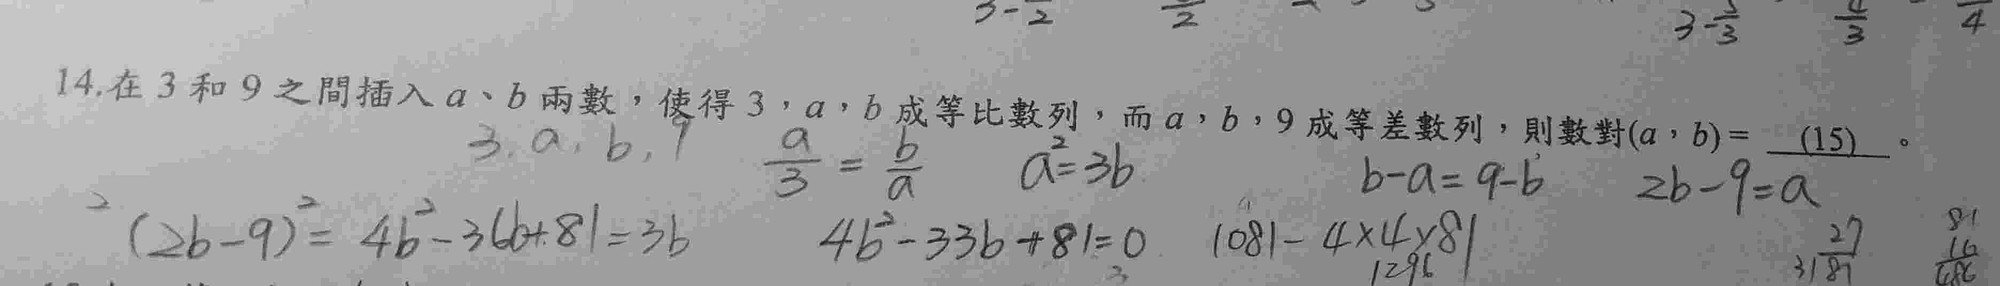 3-    2    2    3-3    3    4
14.在 3 和 9 之間插入 a、b 兩數，使得 3，a，b 成等比數列，而 a，b，9 成等差數列，則數對(a，b)= (15) 。
3. a. b. 9    a/3 = b/a    a²=3b    b-a=9-b    2b-9=a
(2b-9)²= 4b²-36b+81=3b    4b²-33b+81=0    1081-4×4×81    27    81
1296    3    81    16